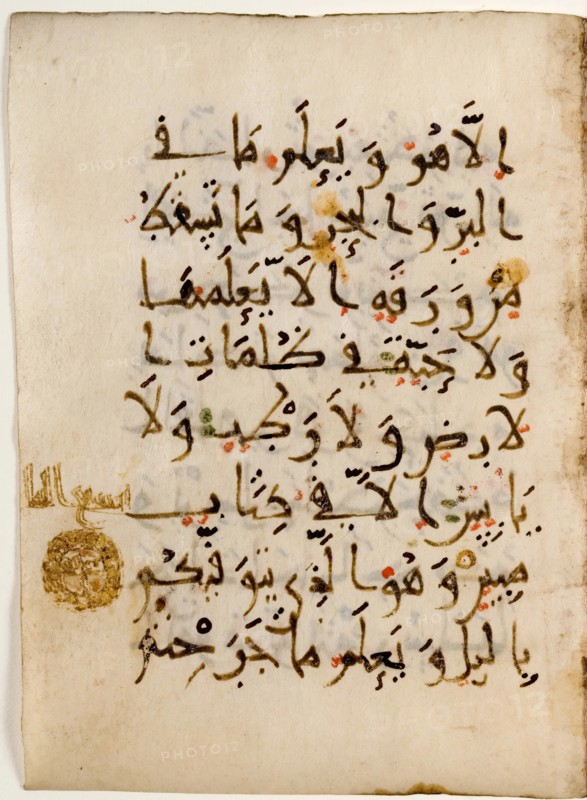 الا هو ويعلم ما في
البر والبحر وما تسقط
من ورقة الا يعلمها
ولا حبة في ظلمات ا
لارض ولا رطب ولا
يابس الا في كتاب
مبين وهو الذي يتوفيكم
باليل ويعلم ما جرحتم
PHOTO12